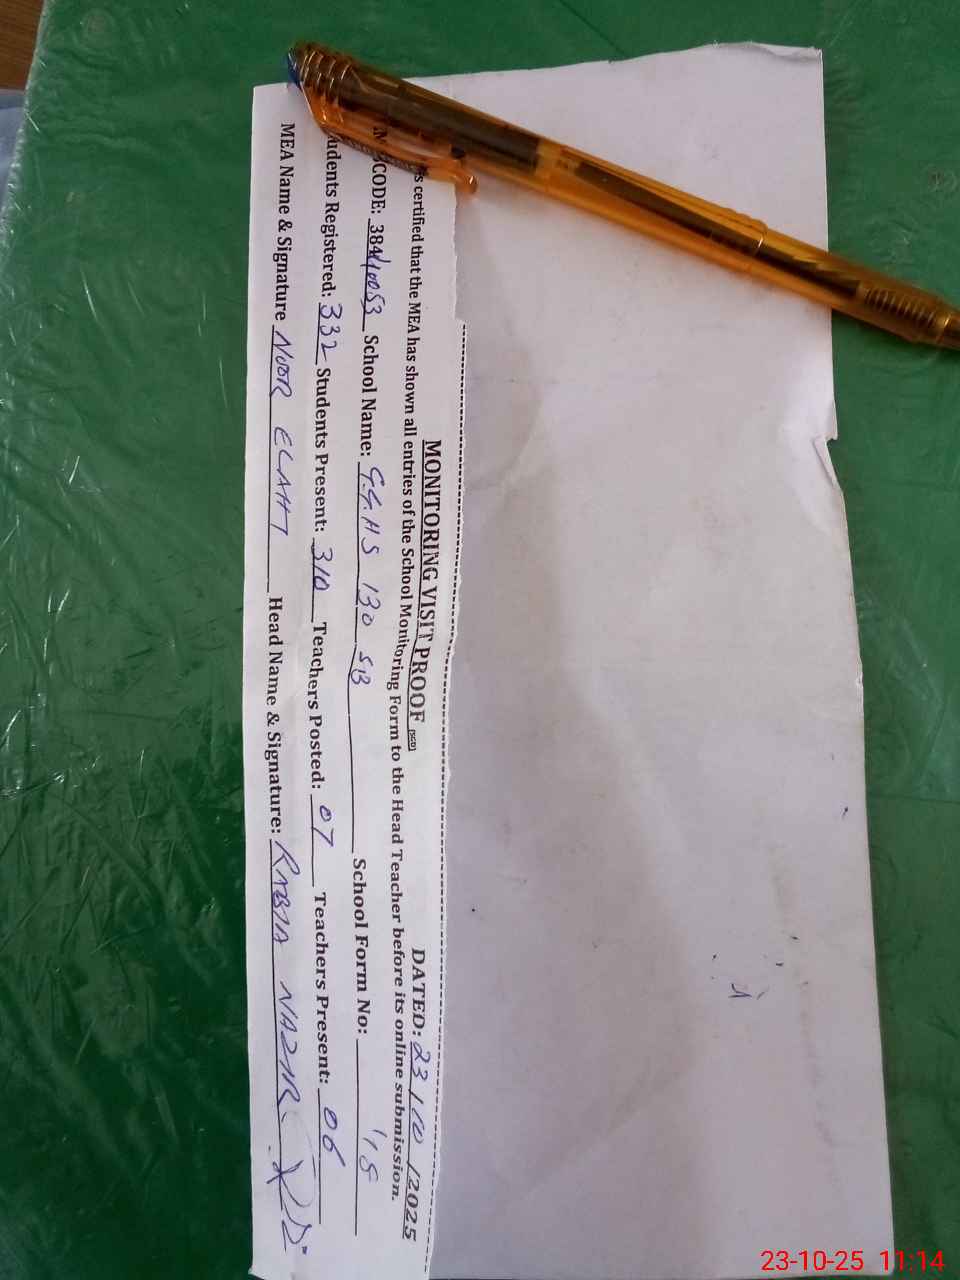 MONITORING VISIT PROOF (SCD) DATED: 23/10/2025
is certified that the MEA has shown all entries of the School Monitoring Form to the Head Teacher before its online submission.
CODE: 38410053 School Name: G.G.H S 130 SB School Form No:
udents Registered: 332 Students Present: 310 Teachers Posted: 07 Teachers Present: 06
MEA Name & Signature NOOR ELAHI Head Name & Signature: RABIA NAZIR
23-10-25 11:14